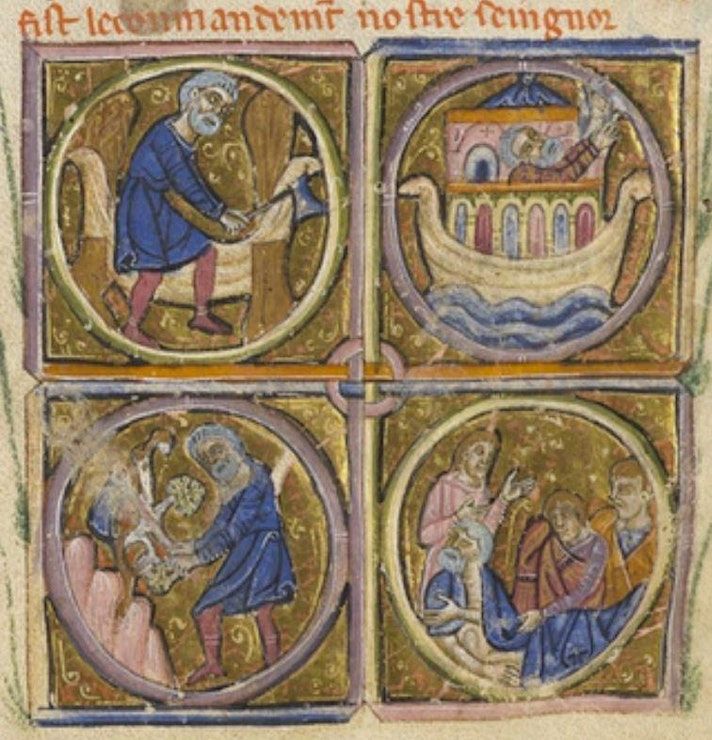 fist le commandemt nostre seingnor